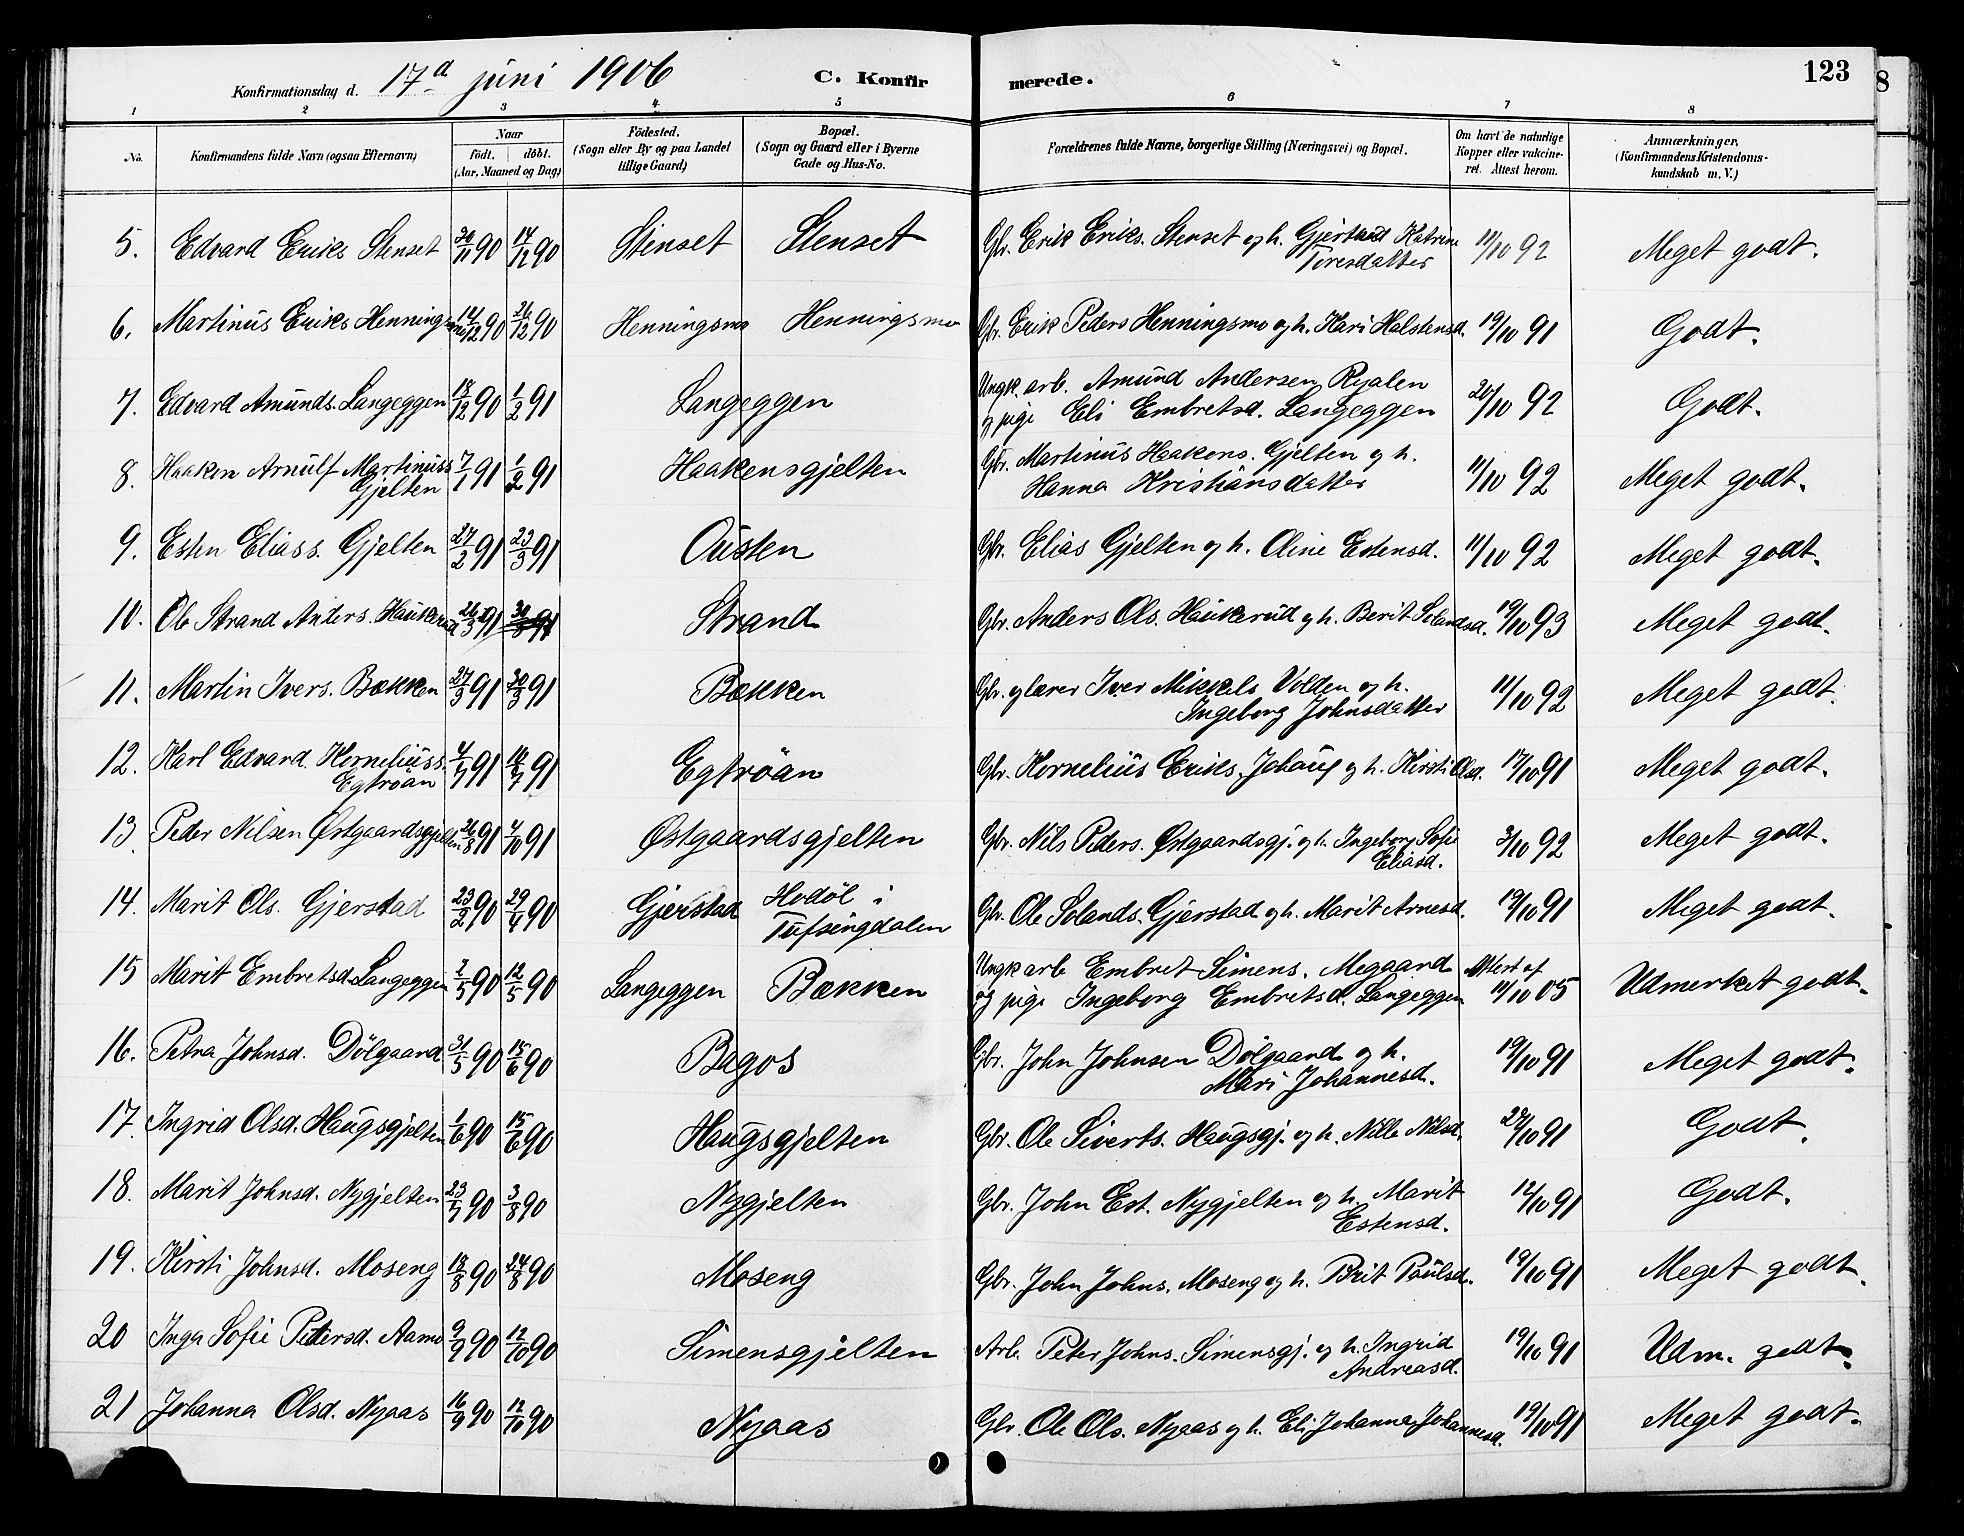 Konfirmationsdag d. 17d juni 1906 C. Konfirmerede. 123
1 2 3 4 5 6 7 8
No. Konfirmandens fulde Navn (ogsaa Efternavn) Naar født. døbt. (Aar, Maaned og Dag) Fødested. (Sogn eller By og paa Landet tillige Gaard) Bopæl. (Sogn og Gaard eller i Byerne Gade og Hus-No. Forældrenes fulde Navne, borgerlige Stilling (Næringsvei) og Bopæl. Om havt de naturlige Kopper eller vakcineret. Attest herom. Anmærkninger. (Konfirmandens Kristendomskundskab m. V.)
5. Edvard Eriks Stenset 30/11 90 14/12 90 Stenset Stenset Gbr. Erik Eriks. Stenset og h. Gjertrud Katrine Toresdatter 11/10 92 Meget godt.
6. Martinus Eriks Henningsmo 14/12 90 26/12 90 Henningsmo Henningsmo Gbr. Erik Peders Henningsmo og h. Kari Halstensd. 19/10 91 Godt.
7. Edvard Amunds. Langeggen 18/12 90 1/2 91 Langeggen Ungk. arb. Amund Andersen Ryalen og pige Eli Embretsd. Langeggen 20/10 92 Godt.
8. Haaken Arnulf Martinuss Gjelten 7/1 91 1/2 91 Haakensgjelten Gbr. Martinus Haakens. Gjelten og h. Hanna Kristiansdatter 11/10 92 Meget godt.
9. Esten Eliass. Gjelten 27/2 91 23/3 91 Ousten Gbr. Elias Gjelten og h. Oline Estensd. 11/10 92 Meget godt.
10. Ole Strand Anders. Haukerud 26/3 91 30/3 91 Strand Gbr. Anders Ols. Haukerud og h. Berit Solandsd. 19/10 93 Meget godt.
11. Martin Ivers. Bækken 27/3 91 30/3 91 Bækken Gbr. og lærer Iver Mikkels Volden og h. Ingeborg Johnsdatter 11/10 92 Meget godt.
12. Karl Edvard Korneliuss. Egtrøan 4/7 91 91 Egtrøan Gbr. Kornelius Eriks. Johaug og h. Kirsti Olsd. 17/10 91 Meget godt.
13. Peder Nilsen Østgaardsgjelten 26/8 91 4/10 91 Østgaardsgjelten Gbr. Nils Peders. Østgaardsgj. og h. Ingeborg Sofie Eliasd. 3/10 92 Meget godt.
14. Marit Ols. Gjerstad 23/2 90 29/4 90 Gjerstad Hodøl i Tufsingdalen Gbr. Ole Solands. Gjerstad og h. Marit Arnesd. 19/10 91 Meget godt.
15 Marit Embretsd. Langeggen 2/5 90 12/5 90 Langeggen Bækken Ungk arb Embret Simens. Megaard og pige Ingeborg Embretsd. Langeggen Attest af 11/10 05 Udmerket godt.
16. Petra Johnsd. Dölgaard 31/5 90 15/6 90 Bagos Gbr. John Johnsen Dölgaard og h. Mari Johannesd. 19/10 91 Meget godt.
17. Ingrid Olsd. Haugsgjelten 1/6 90 15/6 90 Haugsgjelten Gbr. Ole Siverts. Haugsgj. og h. Nille Nilsd. 24/10 91 Godt.
18. Marit Johnsd. Nygjelten 23/7 90 3/8 90 Nygjelten Gbr. John Est. Nygjelten og h. Marit Estensd. 12/10 91 Godt.
19. Kirsti Johnsd. Moseng 18/8 90 24/8 90 Moseng Gbr. John Johns. Moseng og h. Brit Paulsd. 19/10 91 Meget godt.
20 Inga Sofie Petersd. Aamo 9/9 90 12/10 90 Simensgjelten Arb. Peter Johns. Simensgj. og h. Ingrid Andreasd. 19/10 91 Udm. godt.
21 Johanna Olsd. Nyaas 16/9 90 12/10 90 Nyaas Gbr. Ole Ols. Nyaas og h. Eli Johanna Johannesd. 19/10 91 Meget godt.